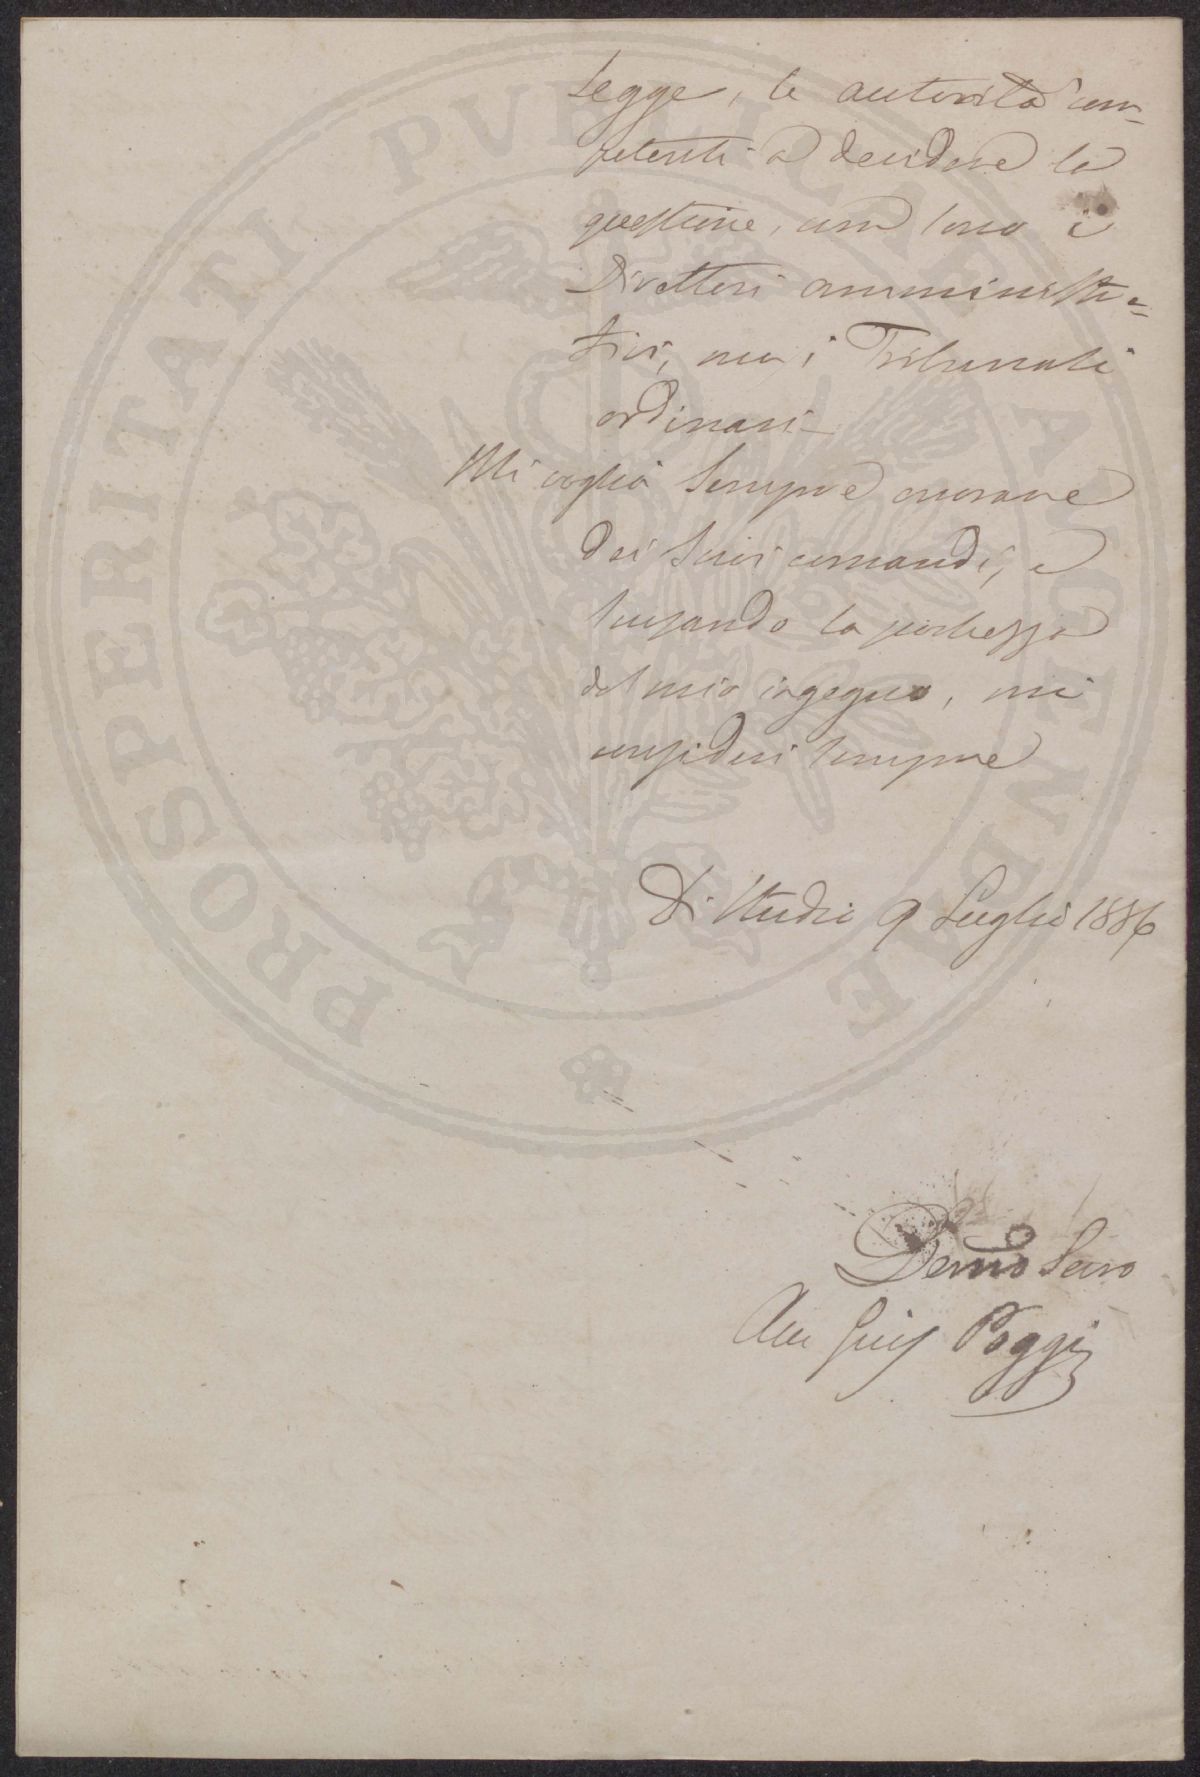 Legge, le autorità com-
petenti a decidere la
questione, non sono i
Direttori amministra-
tivi, ma i Tribunali
ordinari
Mi voglia sempre onorare
dei suoi comandi, e
scusando la pochezza
del mio ingegno, mi
consideri sempre
Di Studio 9 Luglio 1886
Devmo Servo
Avv Giu Poggi
PROSPERITATI PVBLICAE AVGENDAE